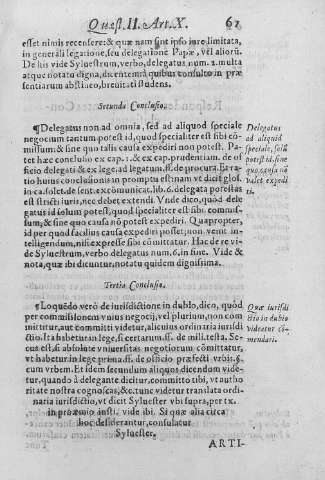 Quæst. II. Art. X. 61
esset nimis recensere: & quæ nam sint ipso iure limitata,
in generali legatione, seu delegatione Papæ, vel aliorũ.
De his vide Syluestrum, verbo, delegatus num. 1. multa
atque notatu digna, dicentem à quibus consulto in præ
sentiarum abstineo, breuitati studens.
Secunda Conclusio.
¶Delegatus non ad omnia, sed ad aliquod speciale
negocium tantum potest id, quod specialiter est sibi cõ
missum, & sine quo talis causa expediri non potest. Pa
tet hæc conclusio ex cap. 1. & ex cap. prudentiam. de of
ficio delegati & ex lege, ad legatum. ff. de procura. Et ra
tio huius conclusionis in promptu est: nam vt dicit glos.
in ca. solet. de sent. excõmunicat. lib. 6. delegata potestas
est stricti iuris, nec debet extendi. Vnde dico, quòd dele
gatus id solum potest, quod specialiter est sibi commis-
sum, & sine quo causa nõ potest expediri. Quapropter,
id per quod faciliùs causa expediri posset, non venit in-
telligendum, nisi expresse sibi cõmittatur. Hac de re vi-
de Syluestrum, verbo delegatus num. 6. in fine. Vide &
nota, quæ ibi dicuntur, notatu quidem dignissima.
Delegatus
ad aliquid
speciale, solũ
potest id, sine
quo, causa nõ
valet expedi
ri.
Tertia Conclusio.
¶Loquẽdo verò de iurisdictione in dubio, dico, quòd
per commissionem vnius negocij, vel plurium, non com
mittitur, aut committi videtur, alicuius ordinaria iurisdi
ctio. Ista habetur in lege, si certarum. ff. de mili. testa. Se-
cus est, si absolutè vniuersitas negotiorum cõmittatur,
vt habetur in lege prima. ff. de officio præfecti vrbis. §.
cum vrbem. Et idem secundum aliquos dicendum vide-
tur, quando à delegante dicitur, committo tibi, vt autho
ritate nostra cognoscas, &c. tunc videtur translata ordi-
naria iurisdictio, vt dicit Syluester vbi supra, per tx.
in proœmio insti. vide ibi. Si quæ alia circa
hoc desiderantur, consulatur
Syluester.
Quæ iurisdi
ctio in dubio
videatur cõ-
mendari.
ARTI-